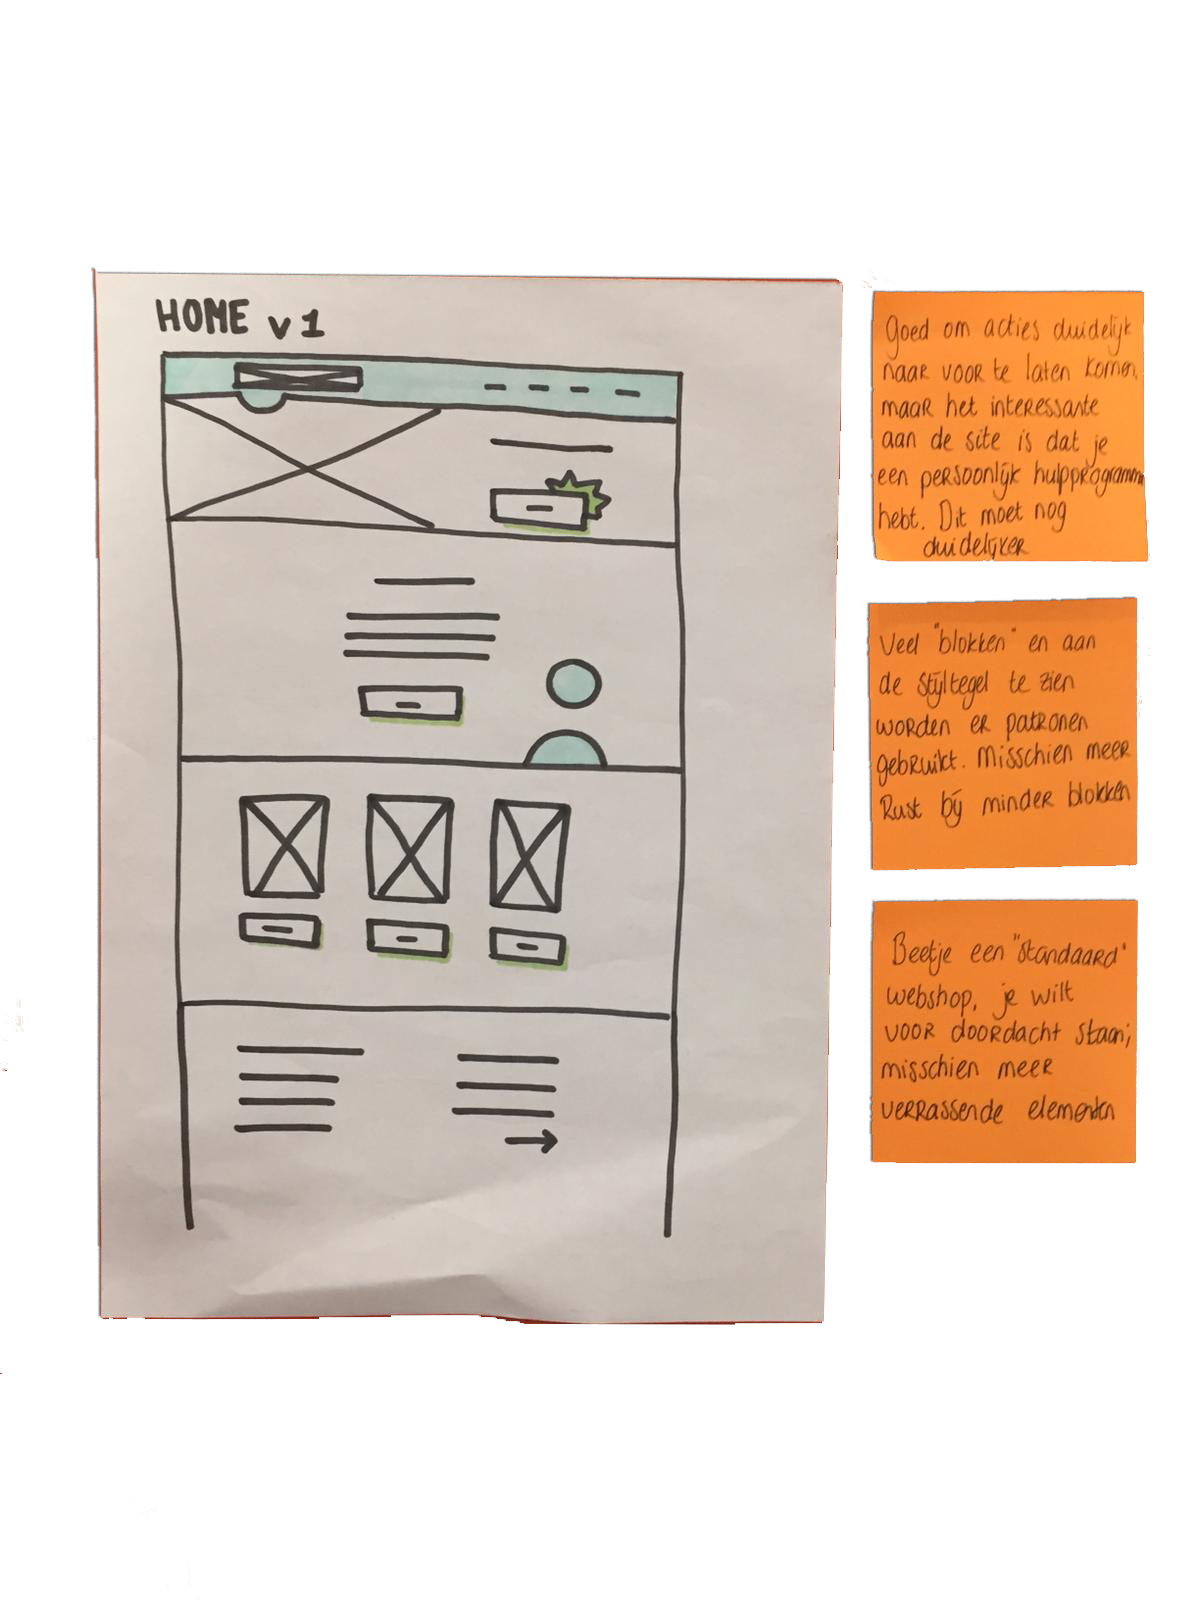 HOME v1
Goed om acties duidelijk
naar voor te laten komen,
maar het interessante
aan de site is dat je
een persoonlijk hulpprogramma
hebt. Dit moet nog
duidelijker
Veel "blokken" en aan
de stijltegel te zien
worden er patronen
gebruikt. Misschien meer
Rust bij minder blokken
Beetje een "standaard"
webshop, je wilt
voor doordacht staan;
misschien meer
verrassende elementen